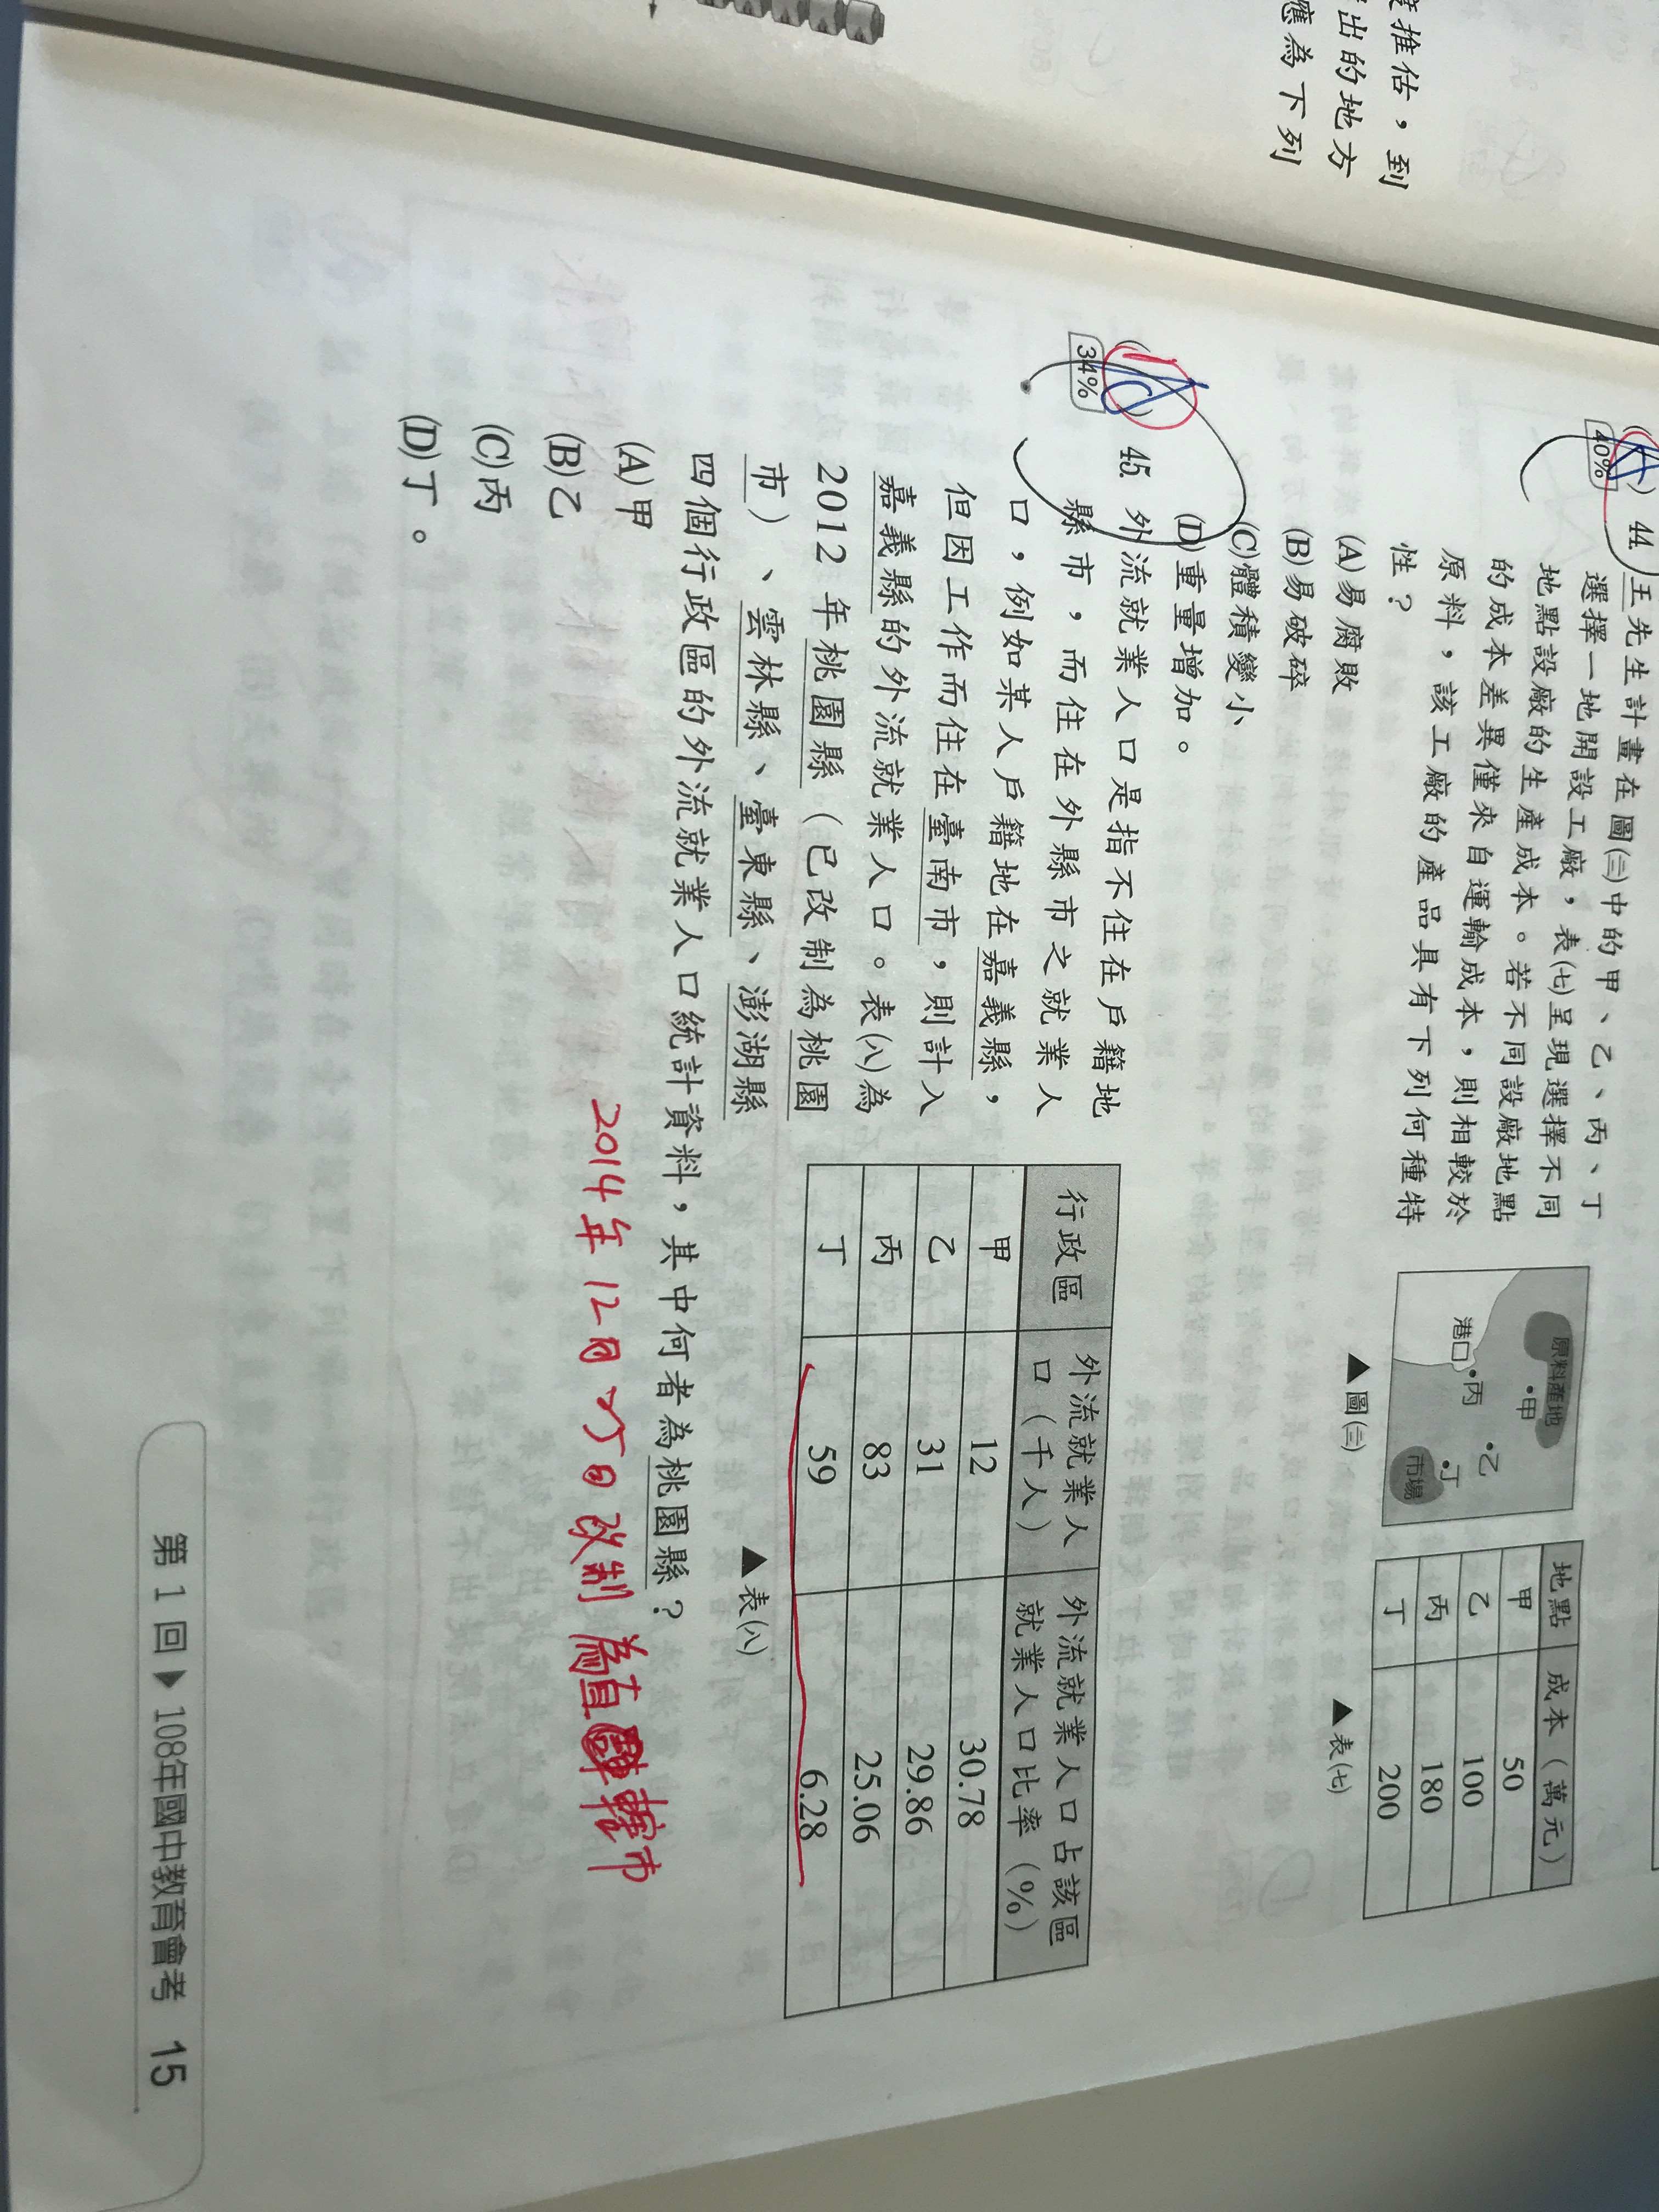 推估，到
出的地方
應為下列
40%
44. 王先生計畫在圖㈢中的甲、乙、丙、丁
選擇一地開設工廠，表㈦呈現選擇不同
地點設廠的生產成本。若不同設廠地點
的成本差異僅來自運輸成本，則相較於
原料，該工廠的產品具有下列何種特
性？
(A)易腐敗
(B)易破碎
(C)體積變小
(D)重量增加。
原料產地
甲
乙
丙
丁
港口
市場
▲圖㈢
地點 成本（萬元）
甲 50
乙 100
丙 180
丁 200
▲表㈦
34%
45. 外流就業人口是指不住在戶籍地
縣市，而住在外縣市之就業人
口，例如某人戶籍地在嘉義縣，
但因工作而住在臺南市，則計入
嘉義縣的外流就業人口。表㈧為
2012 年桃園縣（已改制為桃園
市）、雲林縣、臺東縣、澎湖縣
四個行政區的外流就業人口統計資料，其中何者為桃園縣？
(A)甲
(B)乙
(C)丙
(D)丁。
行政區 外流就業人口（千人） 外流就業人口占該區就業人口比率（%）
甲 12 30.78
乙 31 29.86
丙 83 25.06
丁 59 6.28
▲表㈧
2014年12月25日改制為直轄市
第 1 回▶108年國中教育會考 15